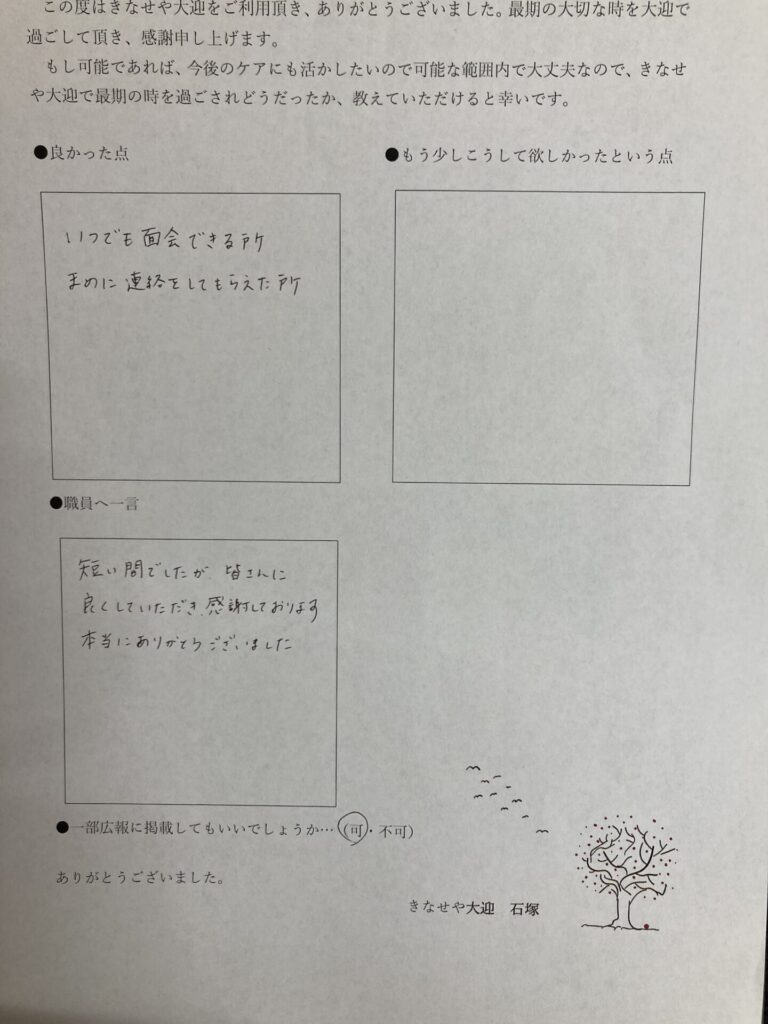 この度はきなせや大迎をご利用頂き、ありがとうございました。最期の大切な時を大迎で
過ごして頂き、感謝申し上げます。
もし可能であれば、今後のケアにも活かしたいので可能な範囲内で大丈夫なので、きなせ
や大迎で最期の時を過ごされどうだったか、教えていただけると幸いです。
●良かった点
●もう少しこうして欲しかったという点
いつでも面会できる所
まめに連絡をしてもらえた所
●職員へ一言
短い間でしたが、皆さんに
良くしていただき、感謝しております
本当にありがとうございました
●一部広報に掲載してもいいでしょうか…（可・不可）
ありがとうございました。
きなせや大迎　石塚